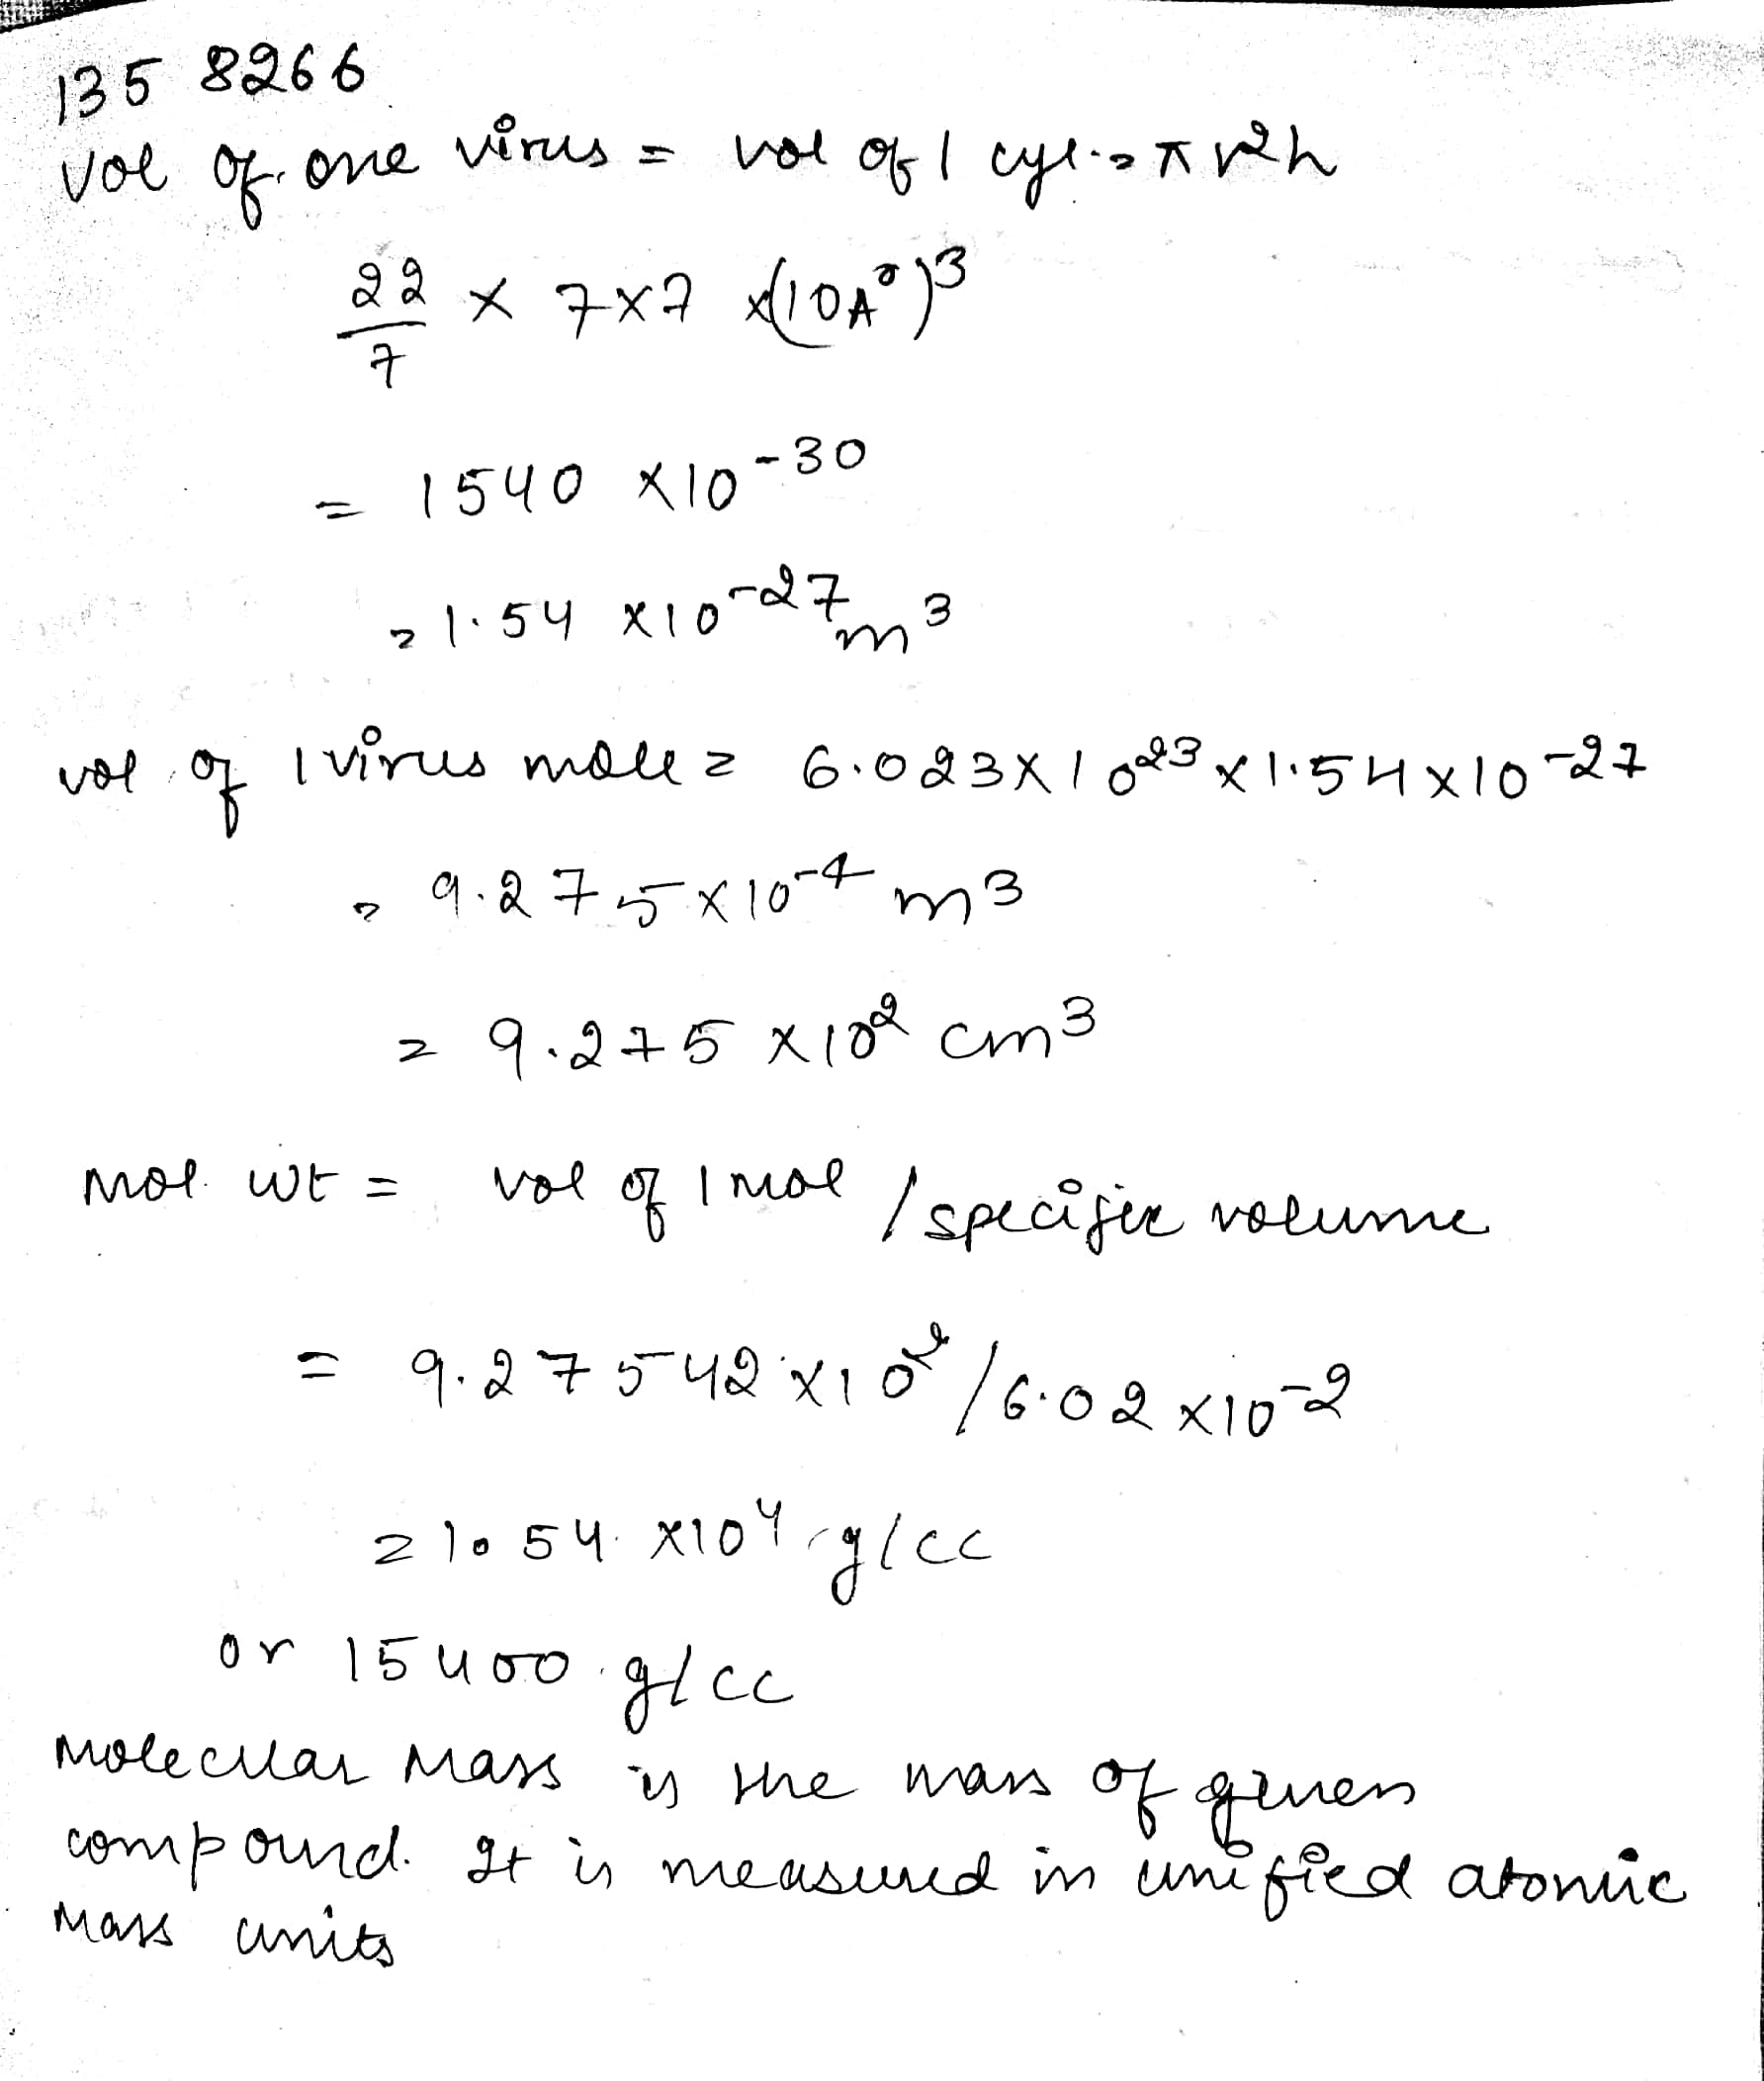 135 8266
Vol of one virus = vol of 1 cyl. = π r2h
22/7 × 7×7 ×(10A°)3
= 1540 ×10-30
= 1.54 ×10-27 m3
vol of 1 virus mole = 6.023×1023 ×1.54×10-27
= 9.275×10-4 m3
= 9.275 ×102 cm3
Mol. wt = vol of 1 mol / specific volume
= 9.27542 ×102 / 6.02 ×10-2
= 1.54 ×104 g/cc
or 15400 g/cc
Molecular Mass is the mass of given
compound. It is measured in unified atomic
Mass units